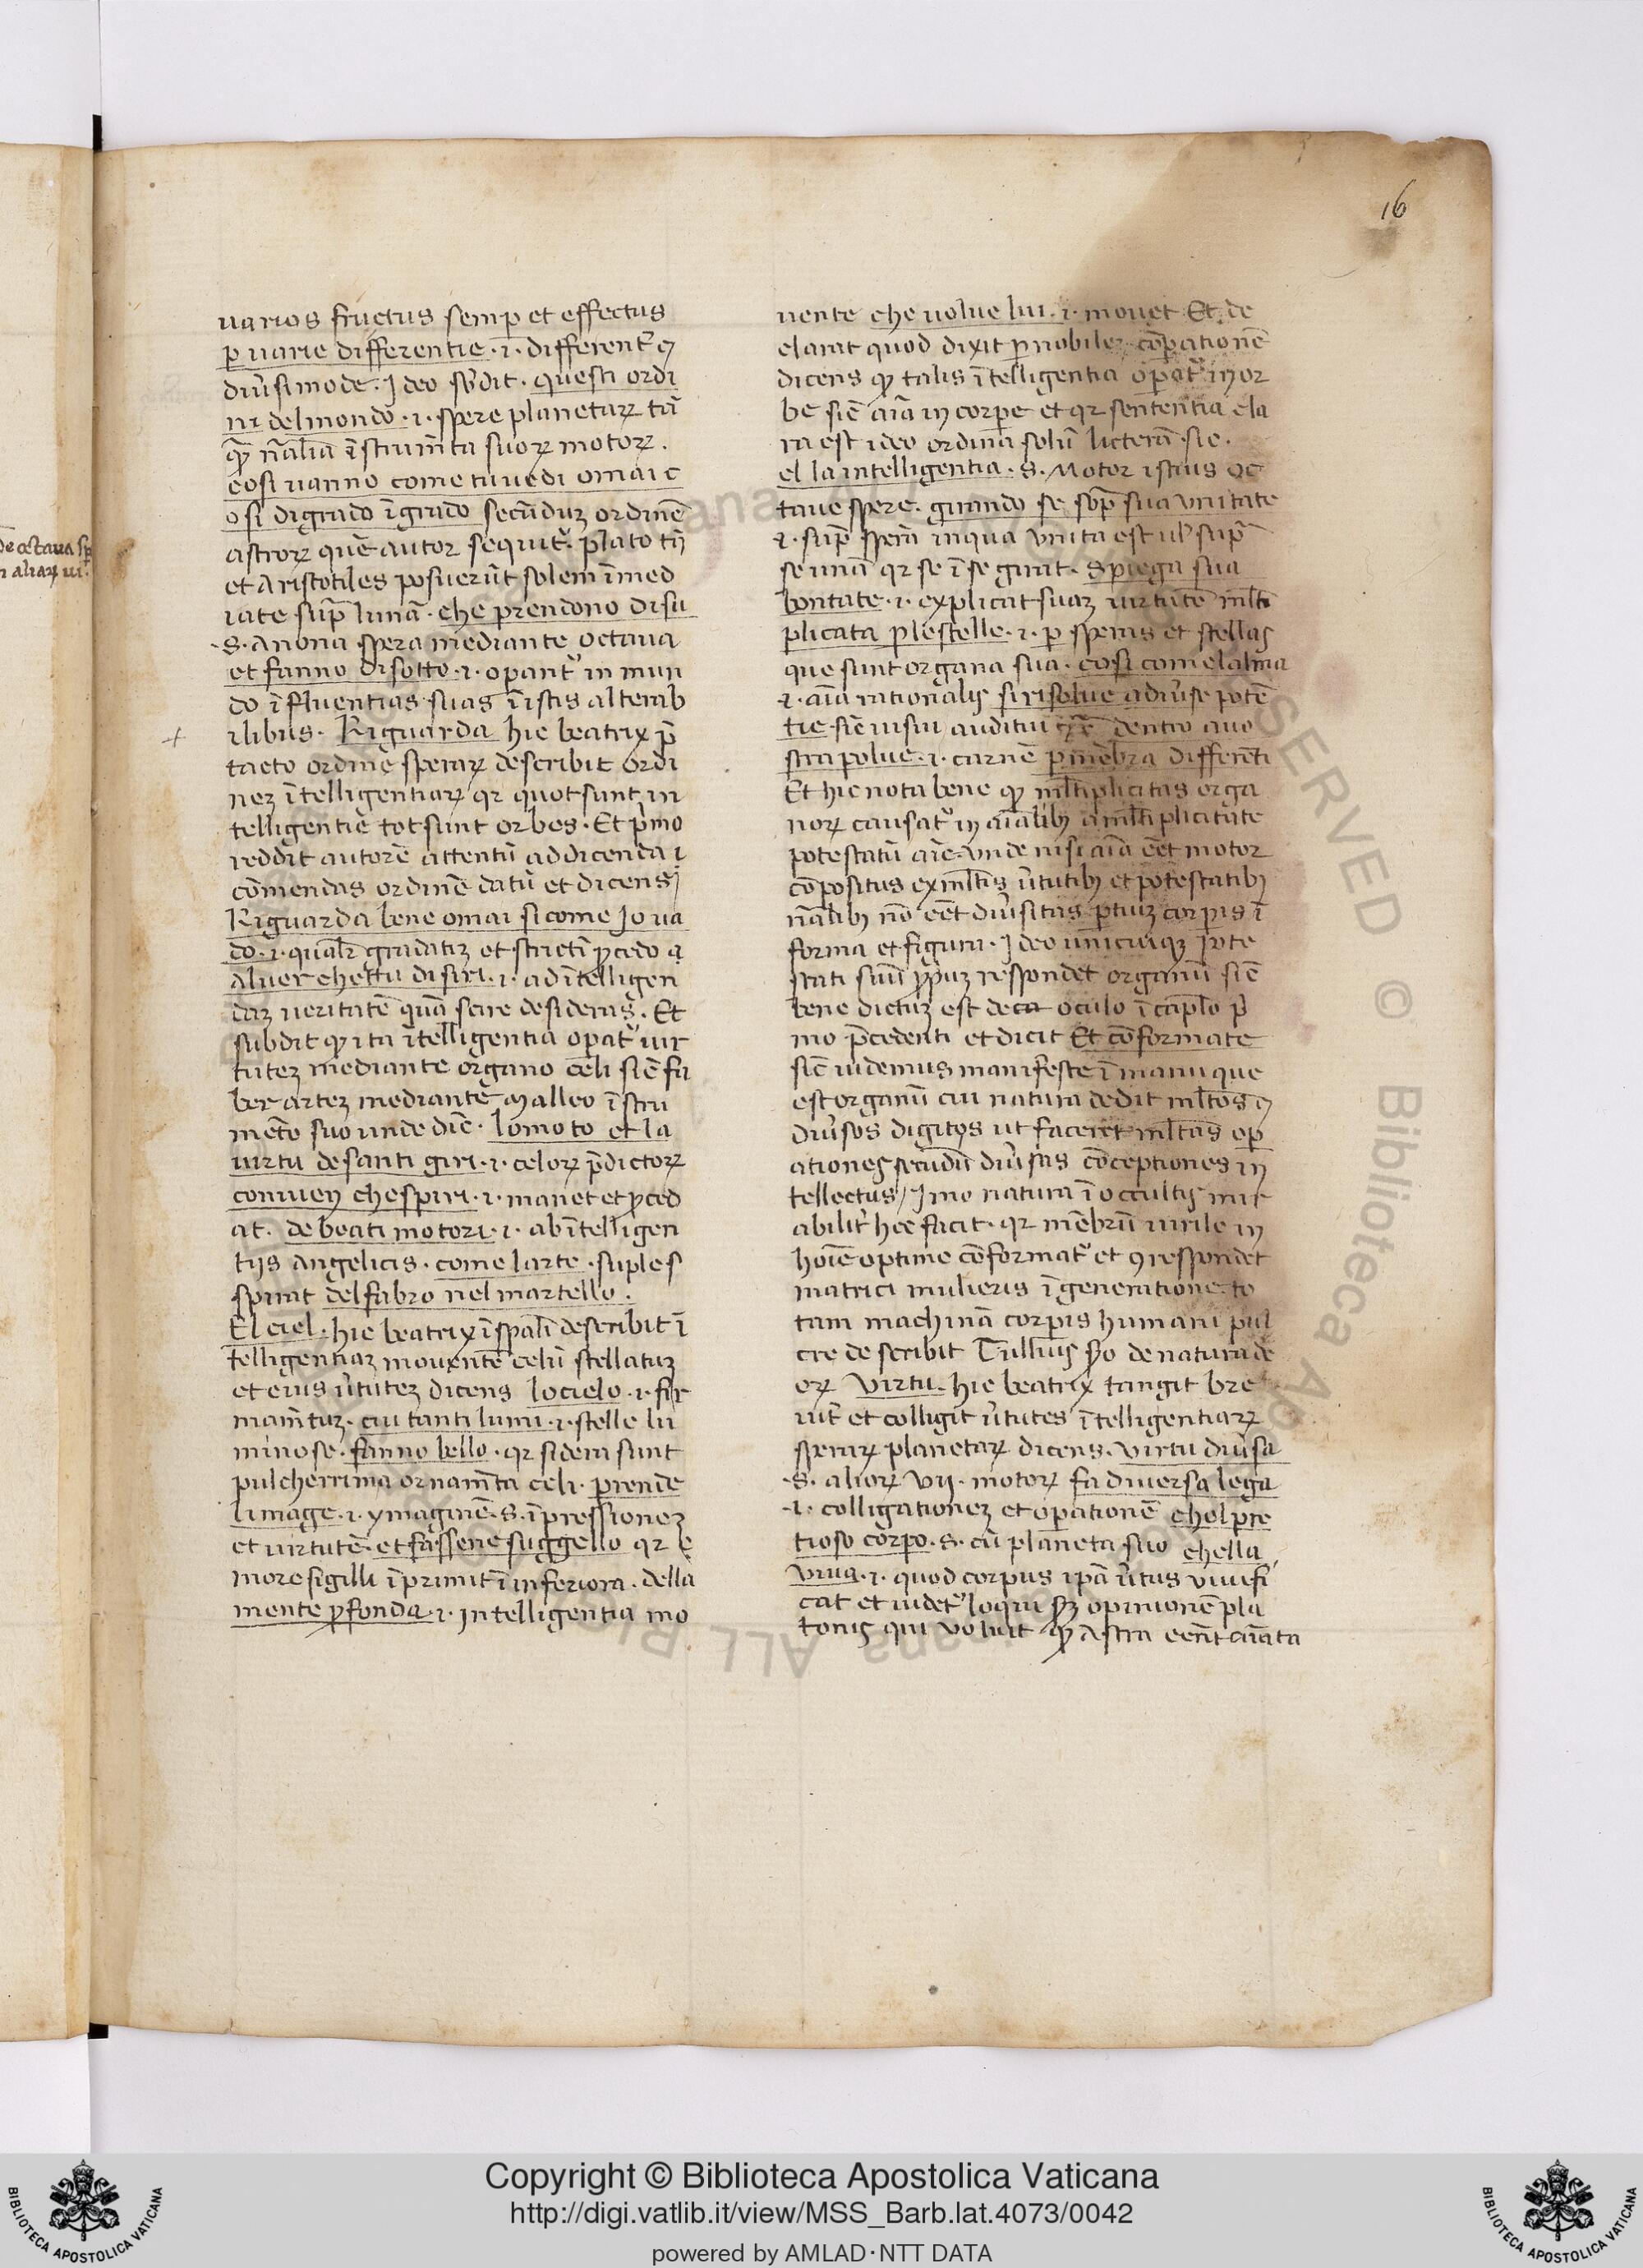 16
varios fructus semp̄ et effectus
p̱ varie differentie · i · different᷑ ⁊
diu̓simode · Ideo sb̓dit · questi ordi
ni delmondo · i · spere planetaꝝ tā
qꝫ nālia īstrum̄ta suoꝝ motoꝝ ·
cosi uanno come tuuedi omai c
osi digrado īgrado secūduꝫ ordinē
astroꝝ quē autor sequit᷑ · plato tn̄
et Aristotiles posuerūt solem īmed
iate sup̄ lunā · che prendono disu
· S · Anona spera mediante octaua
et fanno disotto · i · opant᷑ in mun
do īfluentias suas īistis alterab
ilibus · Riguarda hic beatrix p̄
tacto ordine speraꝝ describit ordi
neꝫ ītelligentiaꝝ qr quot sunt in
telligentie tot sunt orbes · Et p̓mo
reddit autorē attentū addicenda ⁊
cōmendas ordinē datū et dicens /
Riguarda bene omai sicome Jo ua
do · i · qualr̄ gradatiꝫ et strictī ꝓcedo q̄
Aluer chettu disiri · i · ad ītelligen
daꝫ ueritatē quā scire desideras · Et
subdit qꝫ ita ītelligentia opat᷑ uir
tuteꝫ mediante organo celi sic̄ fa
ber arteꝫ mediante malleo īstru
mēto suo unde dic̄ · lomoto et la
uirtu desanti giri · i · celoꝝ p̄dictoꝝ
conuien chespiri · i · manet et ꝓced
at · debeati motori · i · ab ītelligen
tijs angelicis · come larte · suple s
spirat delfabro nel martello ·
El ciel · hic beatrix īspālī describit ī
telligentiaꝫ mouentē celū stellatuꝫ
et eius u̓tuteꝫ dicens locielo · i · fir
mam̄tuꝫ · cui tanti lumi · i · stelle lu
minose · fanno bello · qr sidera sunt
pulcherrima ornam̄ta celi · prende
limage · i · ymaginē · S · īpressioneꝫ
et uirtutē · et fassene suggello qr e
more sigilli īprimit ī inferiora · della
mente ꝓfonda · i · Intelligentia mo
uente che uolue lui · i · mouet Et de
clarat quod dixit p̱ nobileꝫ cōpationē
dicens qꝫ talis ītelligentia opat᷑ in or
be sic̄ aīa in corpe et qr sententia cla
ra est ideo ordina solū litterā · sic ·
el la intelligentia · S · Motor istius oc
taue spere · girando se sop̄ sua unitate
· i · sup̄ sperā inqua unita est ul̓ sup̄
se unā qr se īse girat · Spiega sua
bontate · i · explicat suaꝫ uirtutē ml̄ti
plicata p̱lestelle · i · p̱ speras et stellas
que sunt organa sua · cosi come lalma
· i · aīa rationalis si risolue adiu̓se potē
tie sic̄ uisiu auditiu ⁊c̄ dentro auo
stra polue · i · carnē p̱mēbra differēti
Et hic nota bene qꝫ ml̄tiplicitas orga
noꝝ causat᷑ in aīalibꝫ a ml̄tiplicitate
potestatū aīe · Unde nisi aīa eēt motor
cōpositus ex ml̄tis u̓tutibꝫ et potestatibꝫ
nālibꝫ nō eēt diu̓sitas p̱tiuꝫ corpis ī
forma et figura · Ideo unicuiqꝫ pote
stati suū ꝓpiuꝫ respondet organū sic̄
bene dictuꝫ est deca oculo ī capl̄o p̓
mo p̄cedenti et dicit Et cōformate
sic̄ uidemus manifeste ī manu que
est organū cui natura dedit ml̄tos ⁊
diu̓sos digitos ut faceret ml̄tas op
ationes secūdū diu̓sas cōceptiones in
tellectus / Imo natura ī occultis mir
abilit᷑ hec facit · qr mēbrū uirile in
hoīe optime cōformat᷑ et ꝯrespondet
matrici mulieris ī generatione · to
tam machinā corpis humani pul
cre describit Tullius scd̄o de natura de
oꝝ Virtu · hic beatrix tangit bre
uit᷑ et colligit u̓tutes ītelligentiaꝝ
speraꝝ planetaꝝ dicens · Virtu diu̓sa
· S · alioꝝ vij · motoꝝ fa diuersa lega
· i · colligationeꝫ et opationē chol pre
tioso corpo · S · cū planeta suo chella
uiua · i · quod corpus ip̄a u̓tus uiuifi
cat et uidet᷑ loqui scd̄ꝫ opinionē pla
tonis qui uoluit qꝫ Astra eēnt aīata
de octaua sp̄
aliaꝝ vii ·
Copyright © Biblioteca Apostolica Vaticana
http://digi.vatlib.it/view/MSS_Barb.lat.4073/0042
powered by AMLAD·NTT DATA
BIBLIOTECA APOSTOLICA VATICANA
BIBLIOTECA APOSTOLICA VATICANA